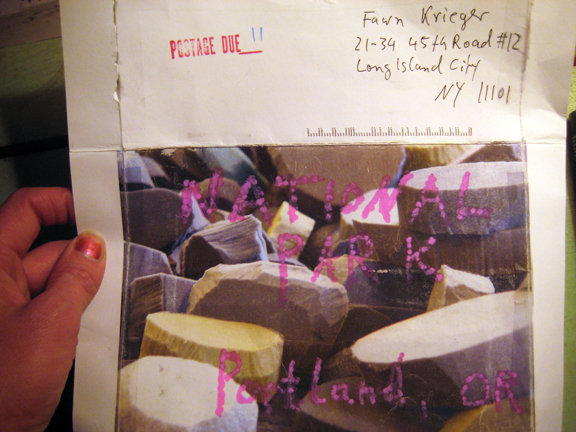 Fawn Krieger
POSTAGE DUE 11
21-34 45th Road #12
Long Island City
NY 11101
NATIONAL
PARK
Portland, OR